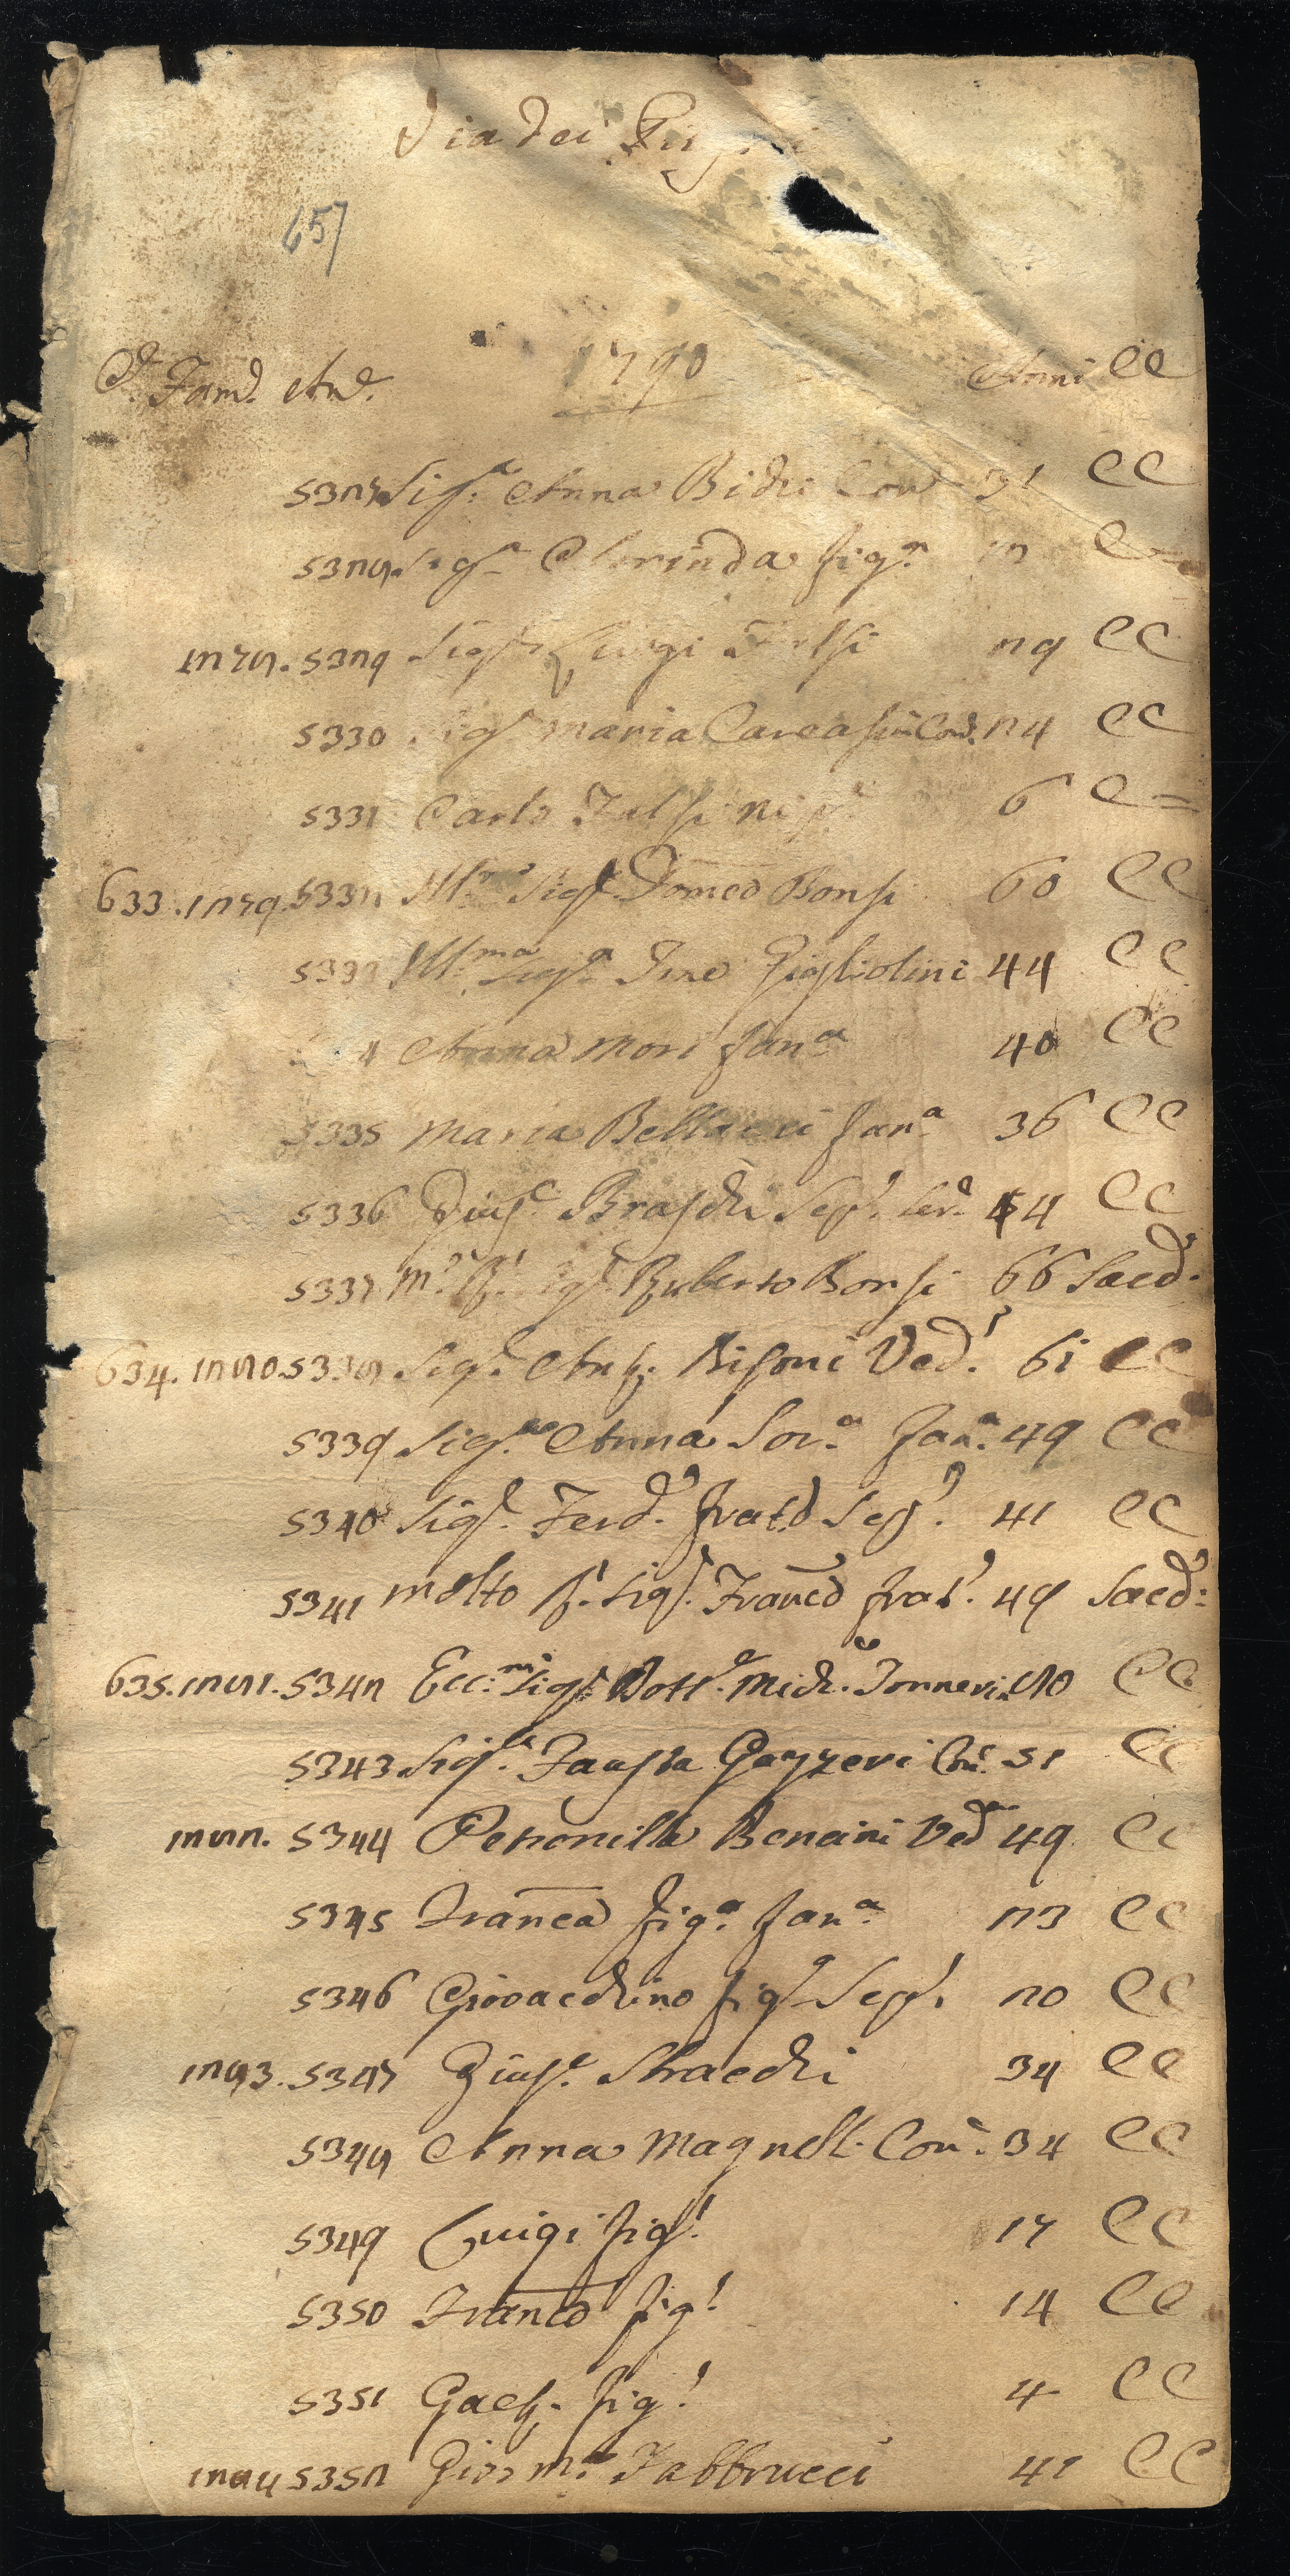 Via dei
657
1790
C. Fam. An. Anni CC
5327 Sig.ª Anna Bichi Con 31 CC
5328 Sig.ª Clorinda fig.ª 12 C=
1278. 5329 Sig.r Luigi Falsi 29 CC
5330 Sig.ª Maria Con. 24 CC
5331 Carlo Falsi 6 C=
633. 1279. 5332 Ill.mo Sig.r Domco Bonsi 60 CC
5333 Ill.ma Sig.ª Giugliolini 44 CC
4 Anna Mori fan.ª 40 CC
5335 Maria Bellacci fan.ª 36 CC
5336 Gius.e Braschi Sep.l Ser. 44 CC
5337 M.o R. Sig.r Ruberto Bonsi 66 Sacd.
634. 1280. 5338 Sig.r Ant. Bisoni Ved.l 61 CC
5339 Sig.ª Anna Sor.ª fan.ª 49 CC
5340 Sig.r Ferd. frat.o Sep.l 41 CC
5341 Molto R. Sig.r Franco frat.l 49 Sacd:
635. 1281. 5342 Ecc.mo Sig.r Dott.e Mich. 80 CC
5343 Sig.ª Fausta Gazzeri Con. 51 CC
1282. 5344 Petronilla Bencini Ved 49 CC
5345 Franca fig.ª fan.ª 23 CC
5346 Giovacchino fig.o Sep.l 20 CC
1283. 5347 Gius.e Stracchi 34 CC
5348 Anna Magnelli Con. 34 CC
5349 Luigi fig.l 17 CC
5350 Franco fig.l 14 CC
5351 Gaet. fig.l 4 CC
1284 5352 Gio: M.ª Fabbrucci 41 CC